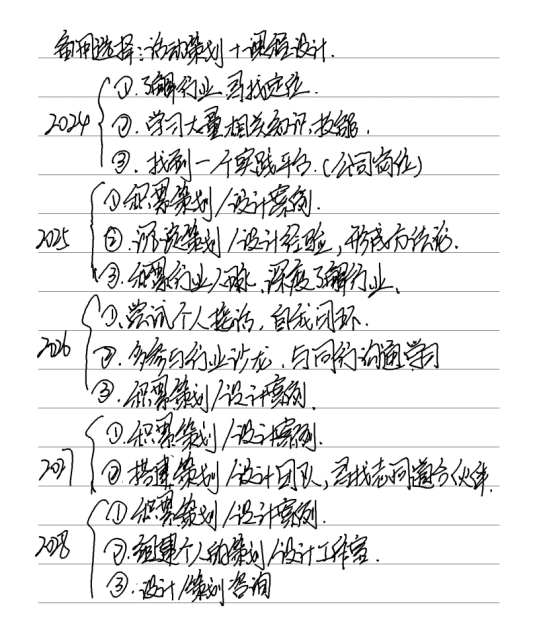 备用选择：活动策划+课程设计.
①.了解行业,寻找定位.
2024 ②.学习大量相关知识、技能.
③.找到一个实践平台.(公司岗位)
①积累策划/设计案例.
2025 ②.沉淀策划/设计经验,形成方法论.
③.积累行业人脉、深度了解行业、
①、尝试个人接活,自我闭环.
2026 ②.多参与行业沙龙,与同行沟通学习
③.积累策划/设计案例.
①.积累策划/设计案例.
2027 ②搭建策划/设计团队,寻找志同道合伙伴.
①积累策划/设计案例.
2028 ②.组建个人的策划/设计工作室.
③.设计/策划咨询